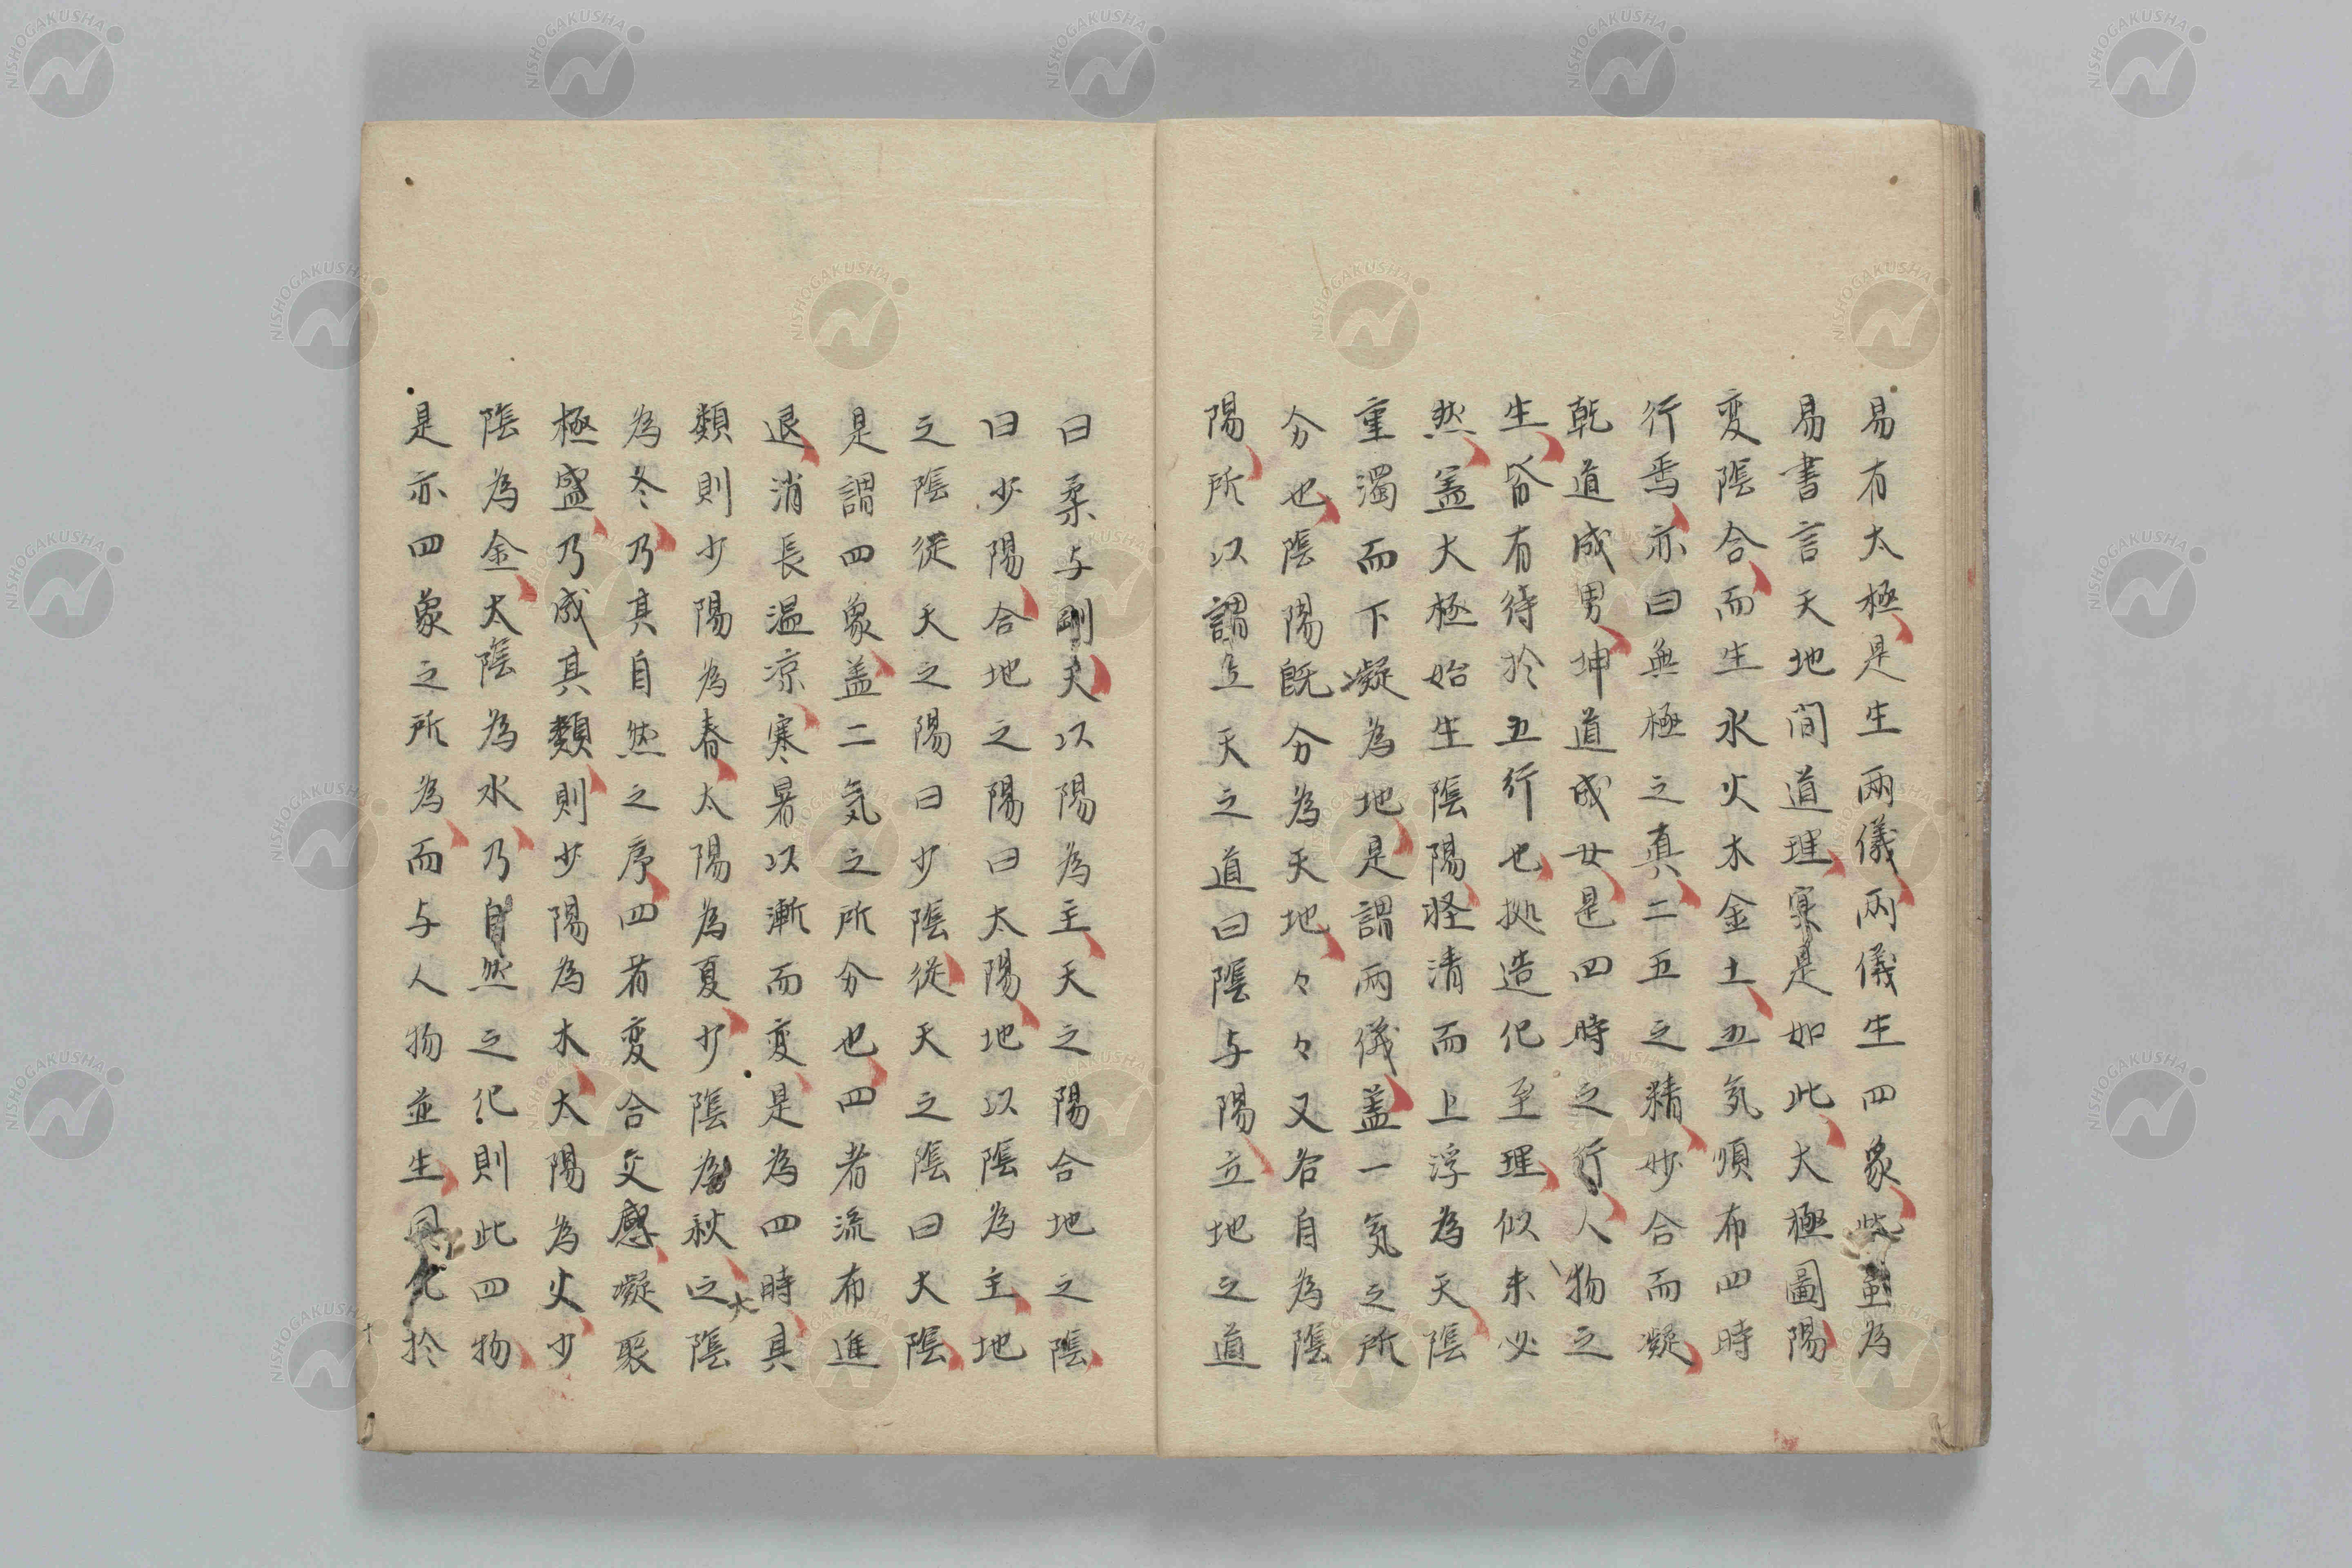 易有太極是生兩儀兩儀生四象此虽為
易書言天地間道理寔是如此太極圖陽
変陰合而生水火木金土五気順布四時
行焉亦曰無極之真二五之精妙合而凝
乾道成男坤道成女是四時之行人物之
生皆有待於五行也拠造化至理似未必
然盖大極始生陰陽軽清而上浮為天陰
重濁而下凝為地是謂兩儀盖一気之所
分也陰陽既分為天地々々又各自為陰
陽所以謂立天之道曰陰与陽立地之道
曰柔与剛天以陽為主天之陽合地之陰
曰少陽合地之陽曰太陽地以陰為主地
之陰従天之陽曰少陰従天之陰曰大陰
是謂四象盖二気之所分也四者流布進
退消長温凉寒暑以漸而変是為四時其
類則少陽為春太陽為夏少陰為秋大陰
為冬乃其自然之序四者変合交感凝聚
極盛乃成其類則少陽為木太陽為火少
陰為金太陰為水乃自然之化則此四物
是亦四象之所為而与人物並生同化於
NISHOGAKUSHA